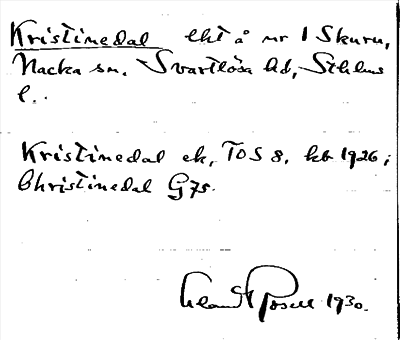 Kristinedal lht å nr 1 Skuru,
Nacka sn. Svartlösa hd, Sthlms
l..
Kristinedal ek, TOS 8, kb 1926;
Christinedal G75.
Rosell 1930.